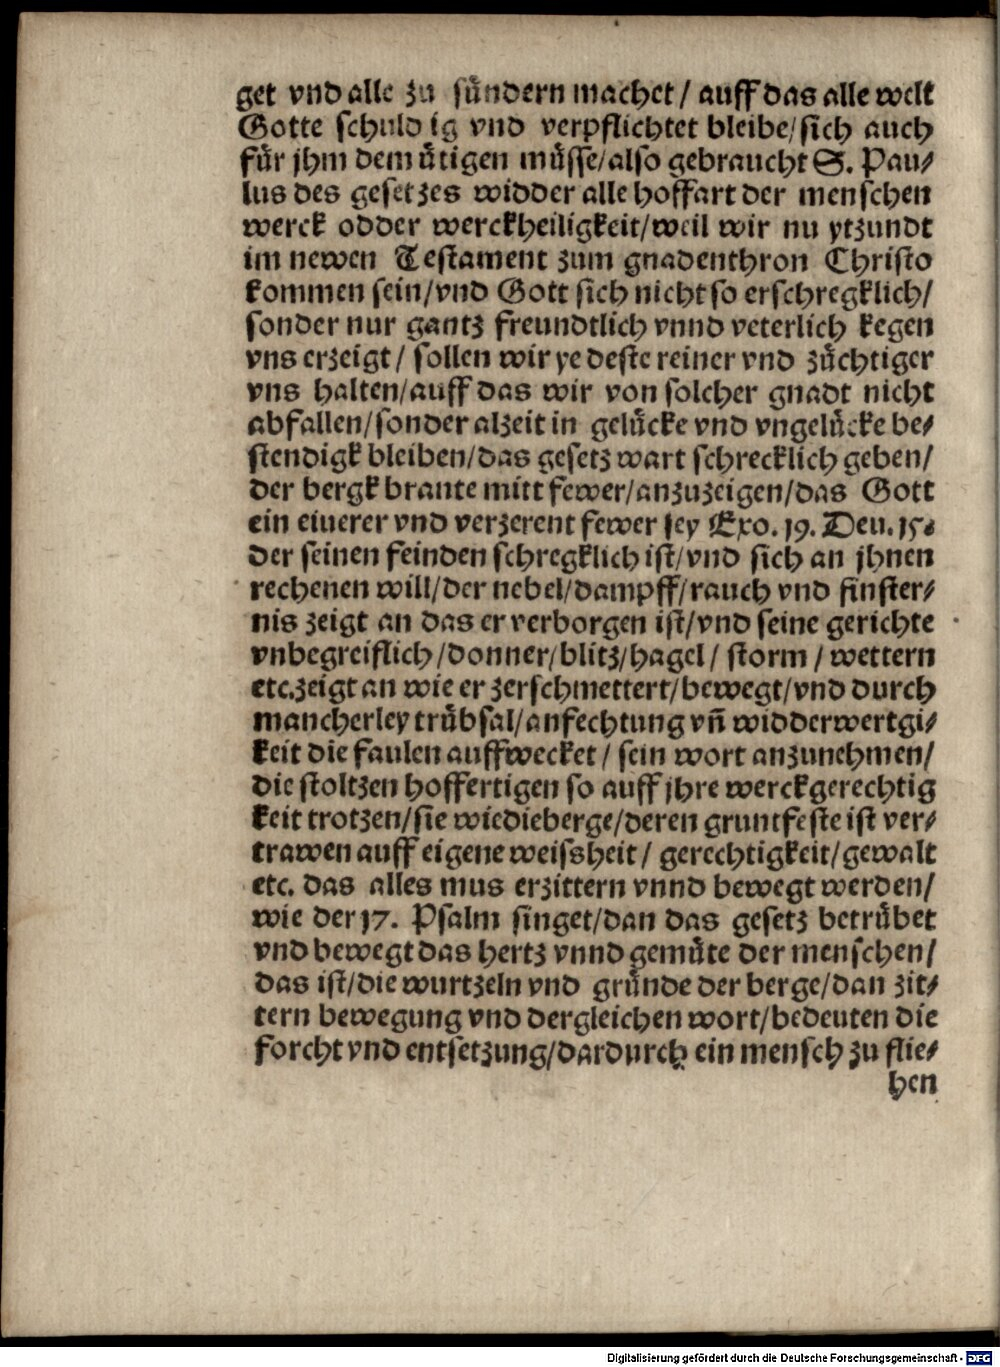 get vnd alle zu sündern machet / auff das alle welt
Gotte schuld ig vnd verpflichtet bleibe/sich auch
für jhm demütigen müsse/also gebraucht S. Pau⸗
lus des gesetzes widder alle hoffart der menschen
werck odder werckheiligkeit/weil wir nu ytzundt
im newen Testament zum gnadenthron Christo
kommen sein/vnd Gott sich nicht so erschregklich/
sonder nur gantz freundtlich vnnd veterlich kegen
vns erzeigt / sollen wir ye deste reiner vnd züchtiger
vns halten/auff das wir von solcher gnadt nicht
abfallen/sonder alzeit in gelücke vnd vngelücke be⸗
stendigk bleiben/das gesetz wart schrecklich geben/
der bergk brante mitt fewer/anzuzeigen/das Gott
ein eiuerer vnd verzerent fewer sey Exo. 19. Deu. 15.
der seinen feinden schregklich ist/vnd sich an jhnen
rechenen will/der nebel/dampff/rauch vnd finster⸗
nis zeigt an das er verborgen ist/vnd seine gerichte
vnbegreiflich/donner/blitz/hagel / storm / wettern
etc.zeigt an wie er zerschmettert/bewegt/vnd durch
mancherley trübsal/anfechtung vñ widderwertgi⸗
keit die faulen auffwecket / sein wort anzunehmen/
die stoltzen hoffertigen so auff jhre werckgerechtig
keit trotzen/sie wie die berge/deren gruntfeste ist ver⸗
trawen auff eigene weissheit / gerechtigkeit/gewalt
etc. das alles mus erzittern vnnd bewegt werden/
wie der 17. Psalm singet/dan das gesetz betrübet
vnd bewegt das hertz vnnd gemüte der menschen/
das ist/die wurtzeln vnd gründe der berge/dan zit⸗
tern bewegung vnd dergleichen wort/bedeuten die
forcht vnd entsetzung/dardurch ein mensch zu flie⸗
hen
Digitalisierung gefördert durch die Deutsche Forschungsgemeinschaft - DFG